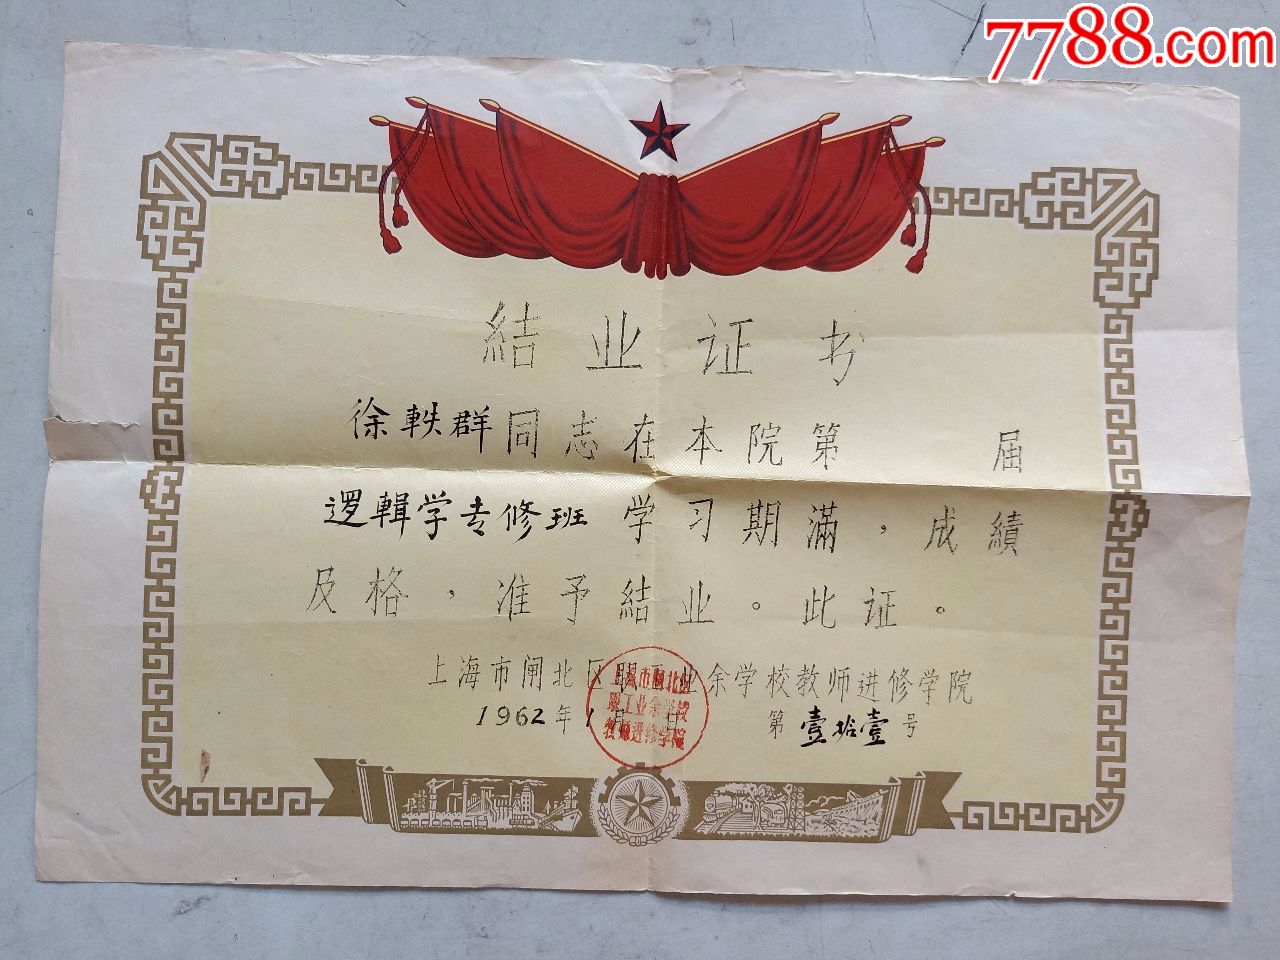 7788.com
結业证书
徐軼群同志在本院第 届
逻輯学专修班 学习期滿，成績
及格，准予結业。此证。
上海市闸北区职工业余学校教师进修学院
1962年1月 日 第壹拾壹号
上海市闸北区
职工业余学校
教师进修学院